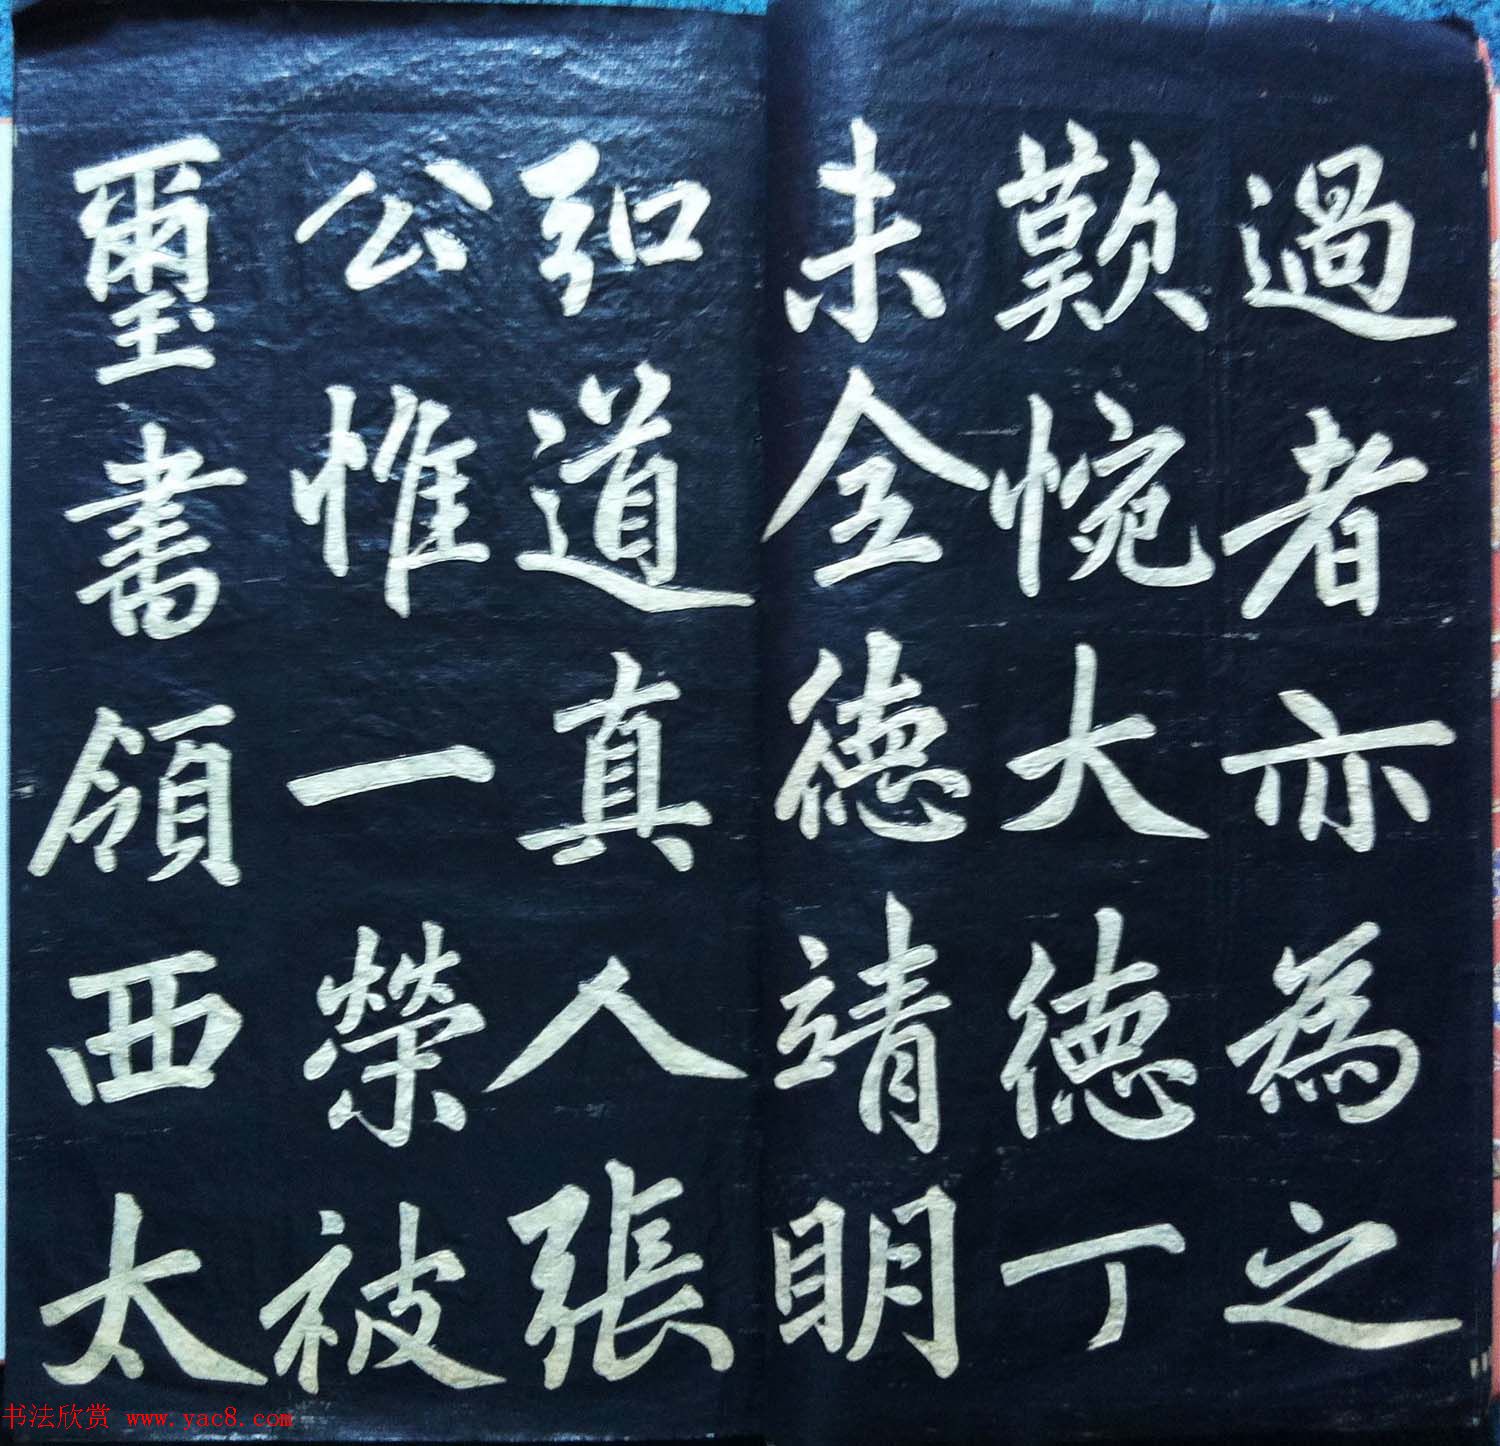 過者亦為之
歎惋大德丁
未全德靖明
弘道真人張
公惟一榮被
璽書領西太
书法欣赏 www.yac8.com